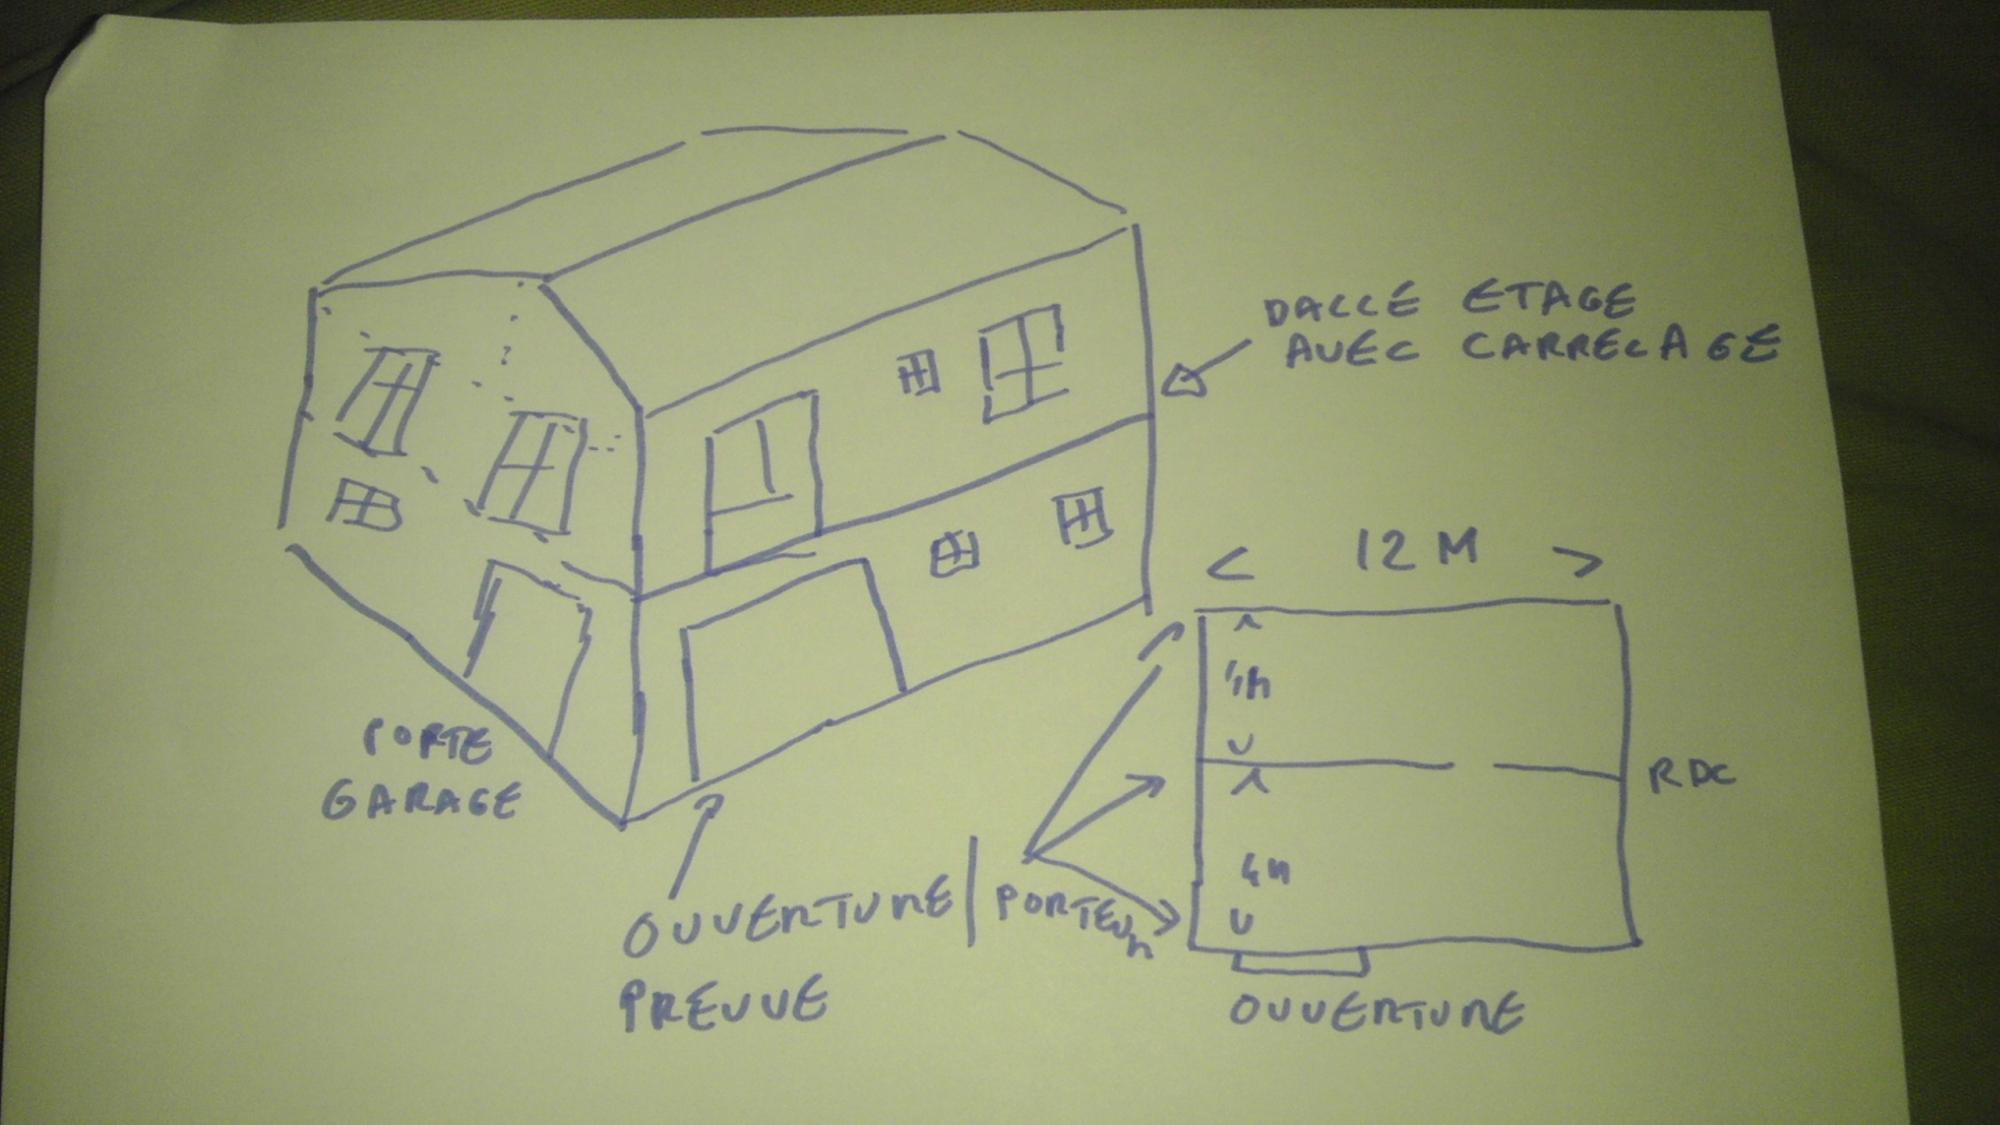 DALLE ETAGE
AVEC CARRELAGE
12 M
4M
RDC
4M
PORTE
GARAGE
OUVERTURE
PREVUE
PORTEUR
OUVERTURE